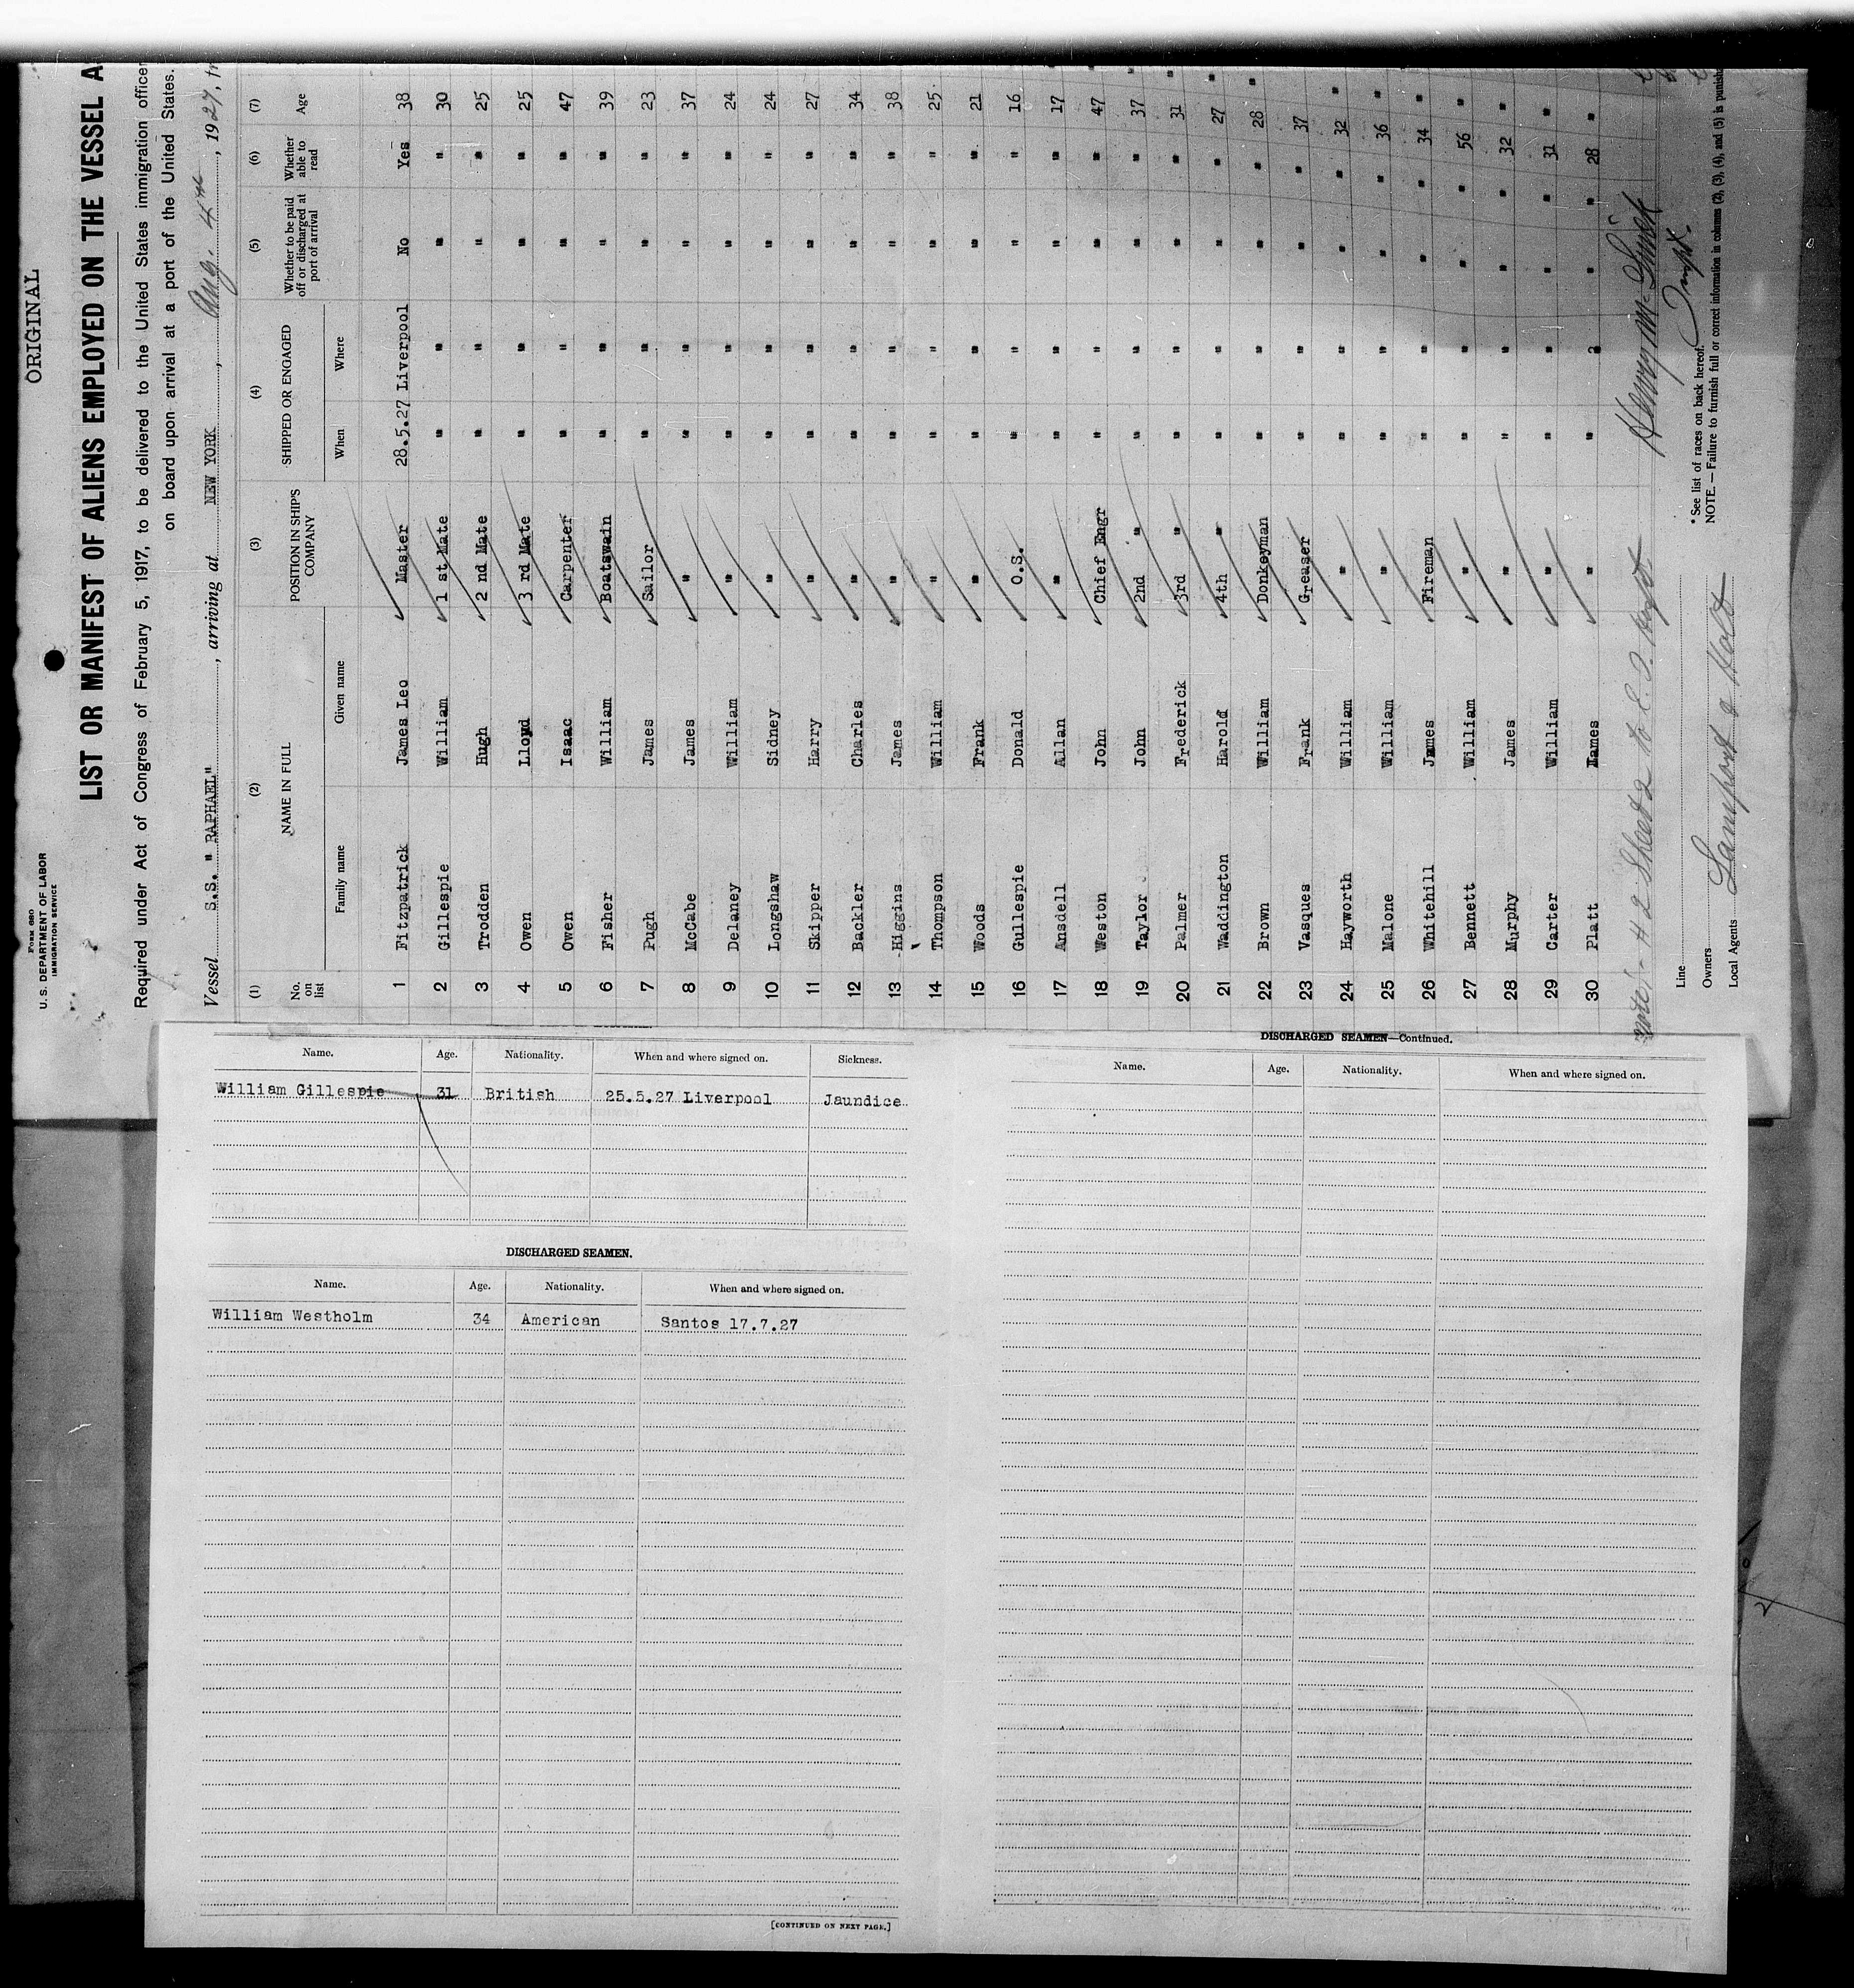 ORIGINAL
Form 680
U.S. DEPARTMENT OF LABOR
IMMIGRATION SERVICE
LIST OR MANIFEST OF ALIENS EMPLOYED ON THE VESSEL A
Required under Act of Congress of February 5, 1917, to be delivered to the United States immigration officer
on board upon arrival at a port of the United States.
Vessel S.S. " RAPHAEL" , arriving at NEW YORK , Aug. 4th , 1927, fr
(1) (2) (3) (4) (5) (6) (7)
No. on list NAME IN FULL POSITION IN SHIP'S COMPANY SHIPPED OR ENGAGED Whether to be paid off or discharged at port of arrival Whether able to read Age
Family name Given name When Where
1 Fitzpatrick James Leo Master 28.5.27 Liverpool No Yes 38
2 Gillespie William 1 st Mate " " " " 30
3 Trodden Hugh 2 nd Mate " " " " 25
4 Owen Lloyd 3 rd Mate " " " " 25
5 Owen Isaac Carpenter " " " " 47
6 Fisher William Boatswain " " " " 39
7 Pugh James Sailor " " " " 23
8 McCabe James " " " " " 37
9 Delaney William " " " " " 24
10 Longshaw Sidney " " " " " 24
11 Skipper Harry " " " " " 27
12 Backler Charles " " " " " 34
13 Higgins James " " " " " 38
14 Thompson William " " " " " 25
15 Woods Frank " " " " " 21
16 Gullespie Donald O.S. " " " " 16
17 Ansdell Allan " " " " " 17
18 Weston John Chief Engr " " " " 47
19 Taylor John 2nd " " " " " 37
20 Palmer Frederick 3rd " " " " " 31
21 Waddington Harold 4th " " " " " 27
22 Brown William Donkeyman " " " " 28
23 Vasques Frank Greaser " " " " 37
24 Hayworth William " " " " " 32
25 Malone William " " " " " 36
26 Whitehill James Fireman " " " " 34
27 Bennett William " " " " " 56
28 Murphy James " " " " " 32
29 Carter William " " " " " 31
30 Platt James " " " " " 28
Note:- # 2 Sheet 2 to
Henry Mc
Inspt.
Line
Owners
Local Agents Lamport & Holt
* See list of races on back hereof.
NOTE.—Failure to furnish full or correct information in columns (2), (3), (4), and (5) is punish
Name. Age. Nationality. When and where signed on. Sickness.
William Gillespie 31 British 25.5.27 Liverpool Jaundice
DISCHARGED SEAMEN.
Name. Age. Nationality. When and where signed on.
William Westholm 34 American Santos 17.7.27
[CONTINUED ON NEXT PAGE.]
DISCHARGED SEAMEN—Continued.
Name. Age. Nationality. When and where signed on.